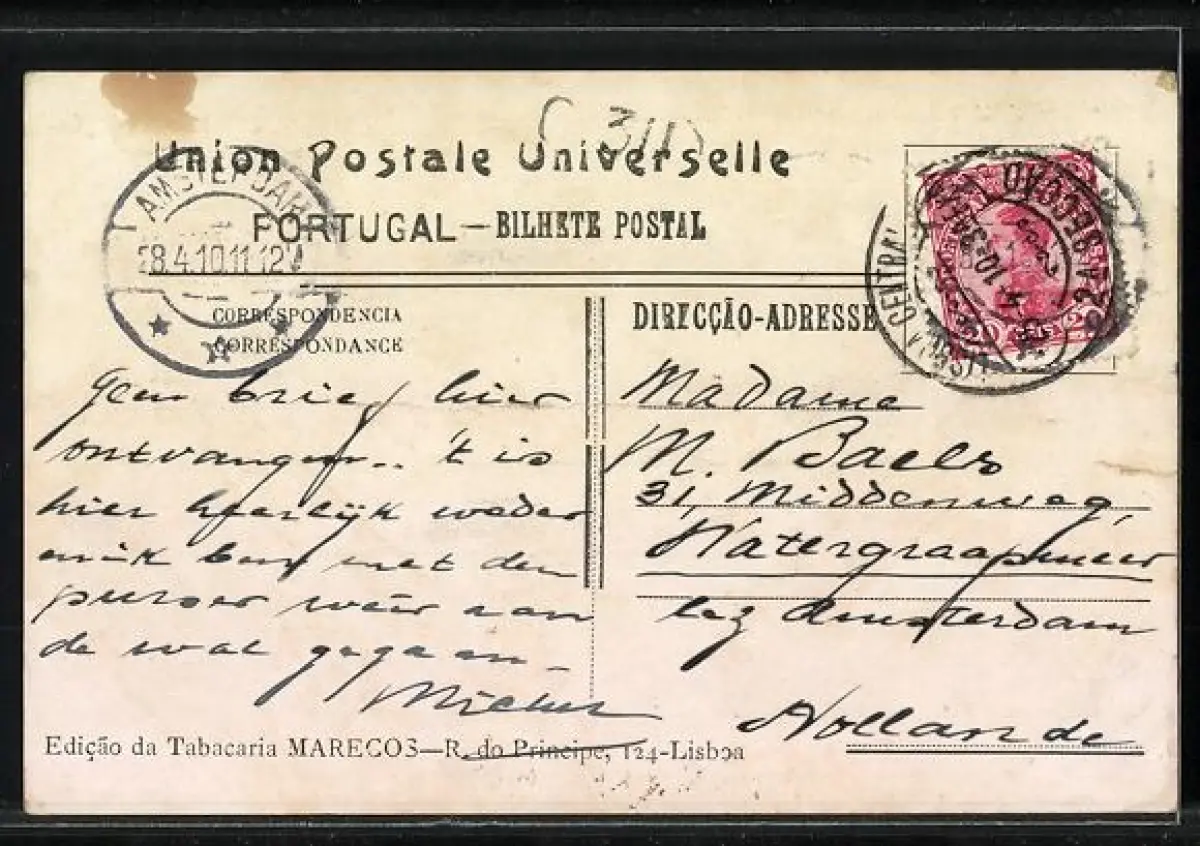 Union Postale Universelle
PORTUGAL—BILHETE POSTAL
AMSTERDAM
28.4.10.11-12V
CORRESPONDENCIA
CORRESPONDANCE
DIRECÇÃO-ADRESSE
CENTRAL
2A SECCAO
Geen brief hier
ontvangen.. 't is
hier heerlijk weder
en ik ben met den
purser weer aan
de wal gegaan—
Madame
M. Baels
31, Middenweg,
Watergraafsmeer
bez Amsterdam
Hollande
Edição da Tabacaria MARECOS—R. do Principe, 124-Lisboa